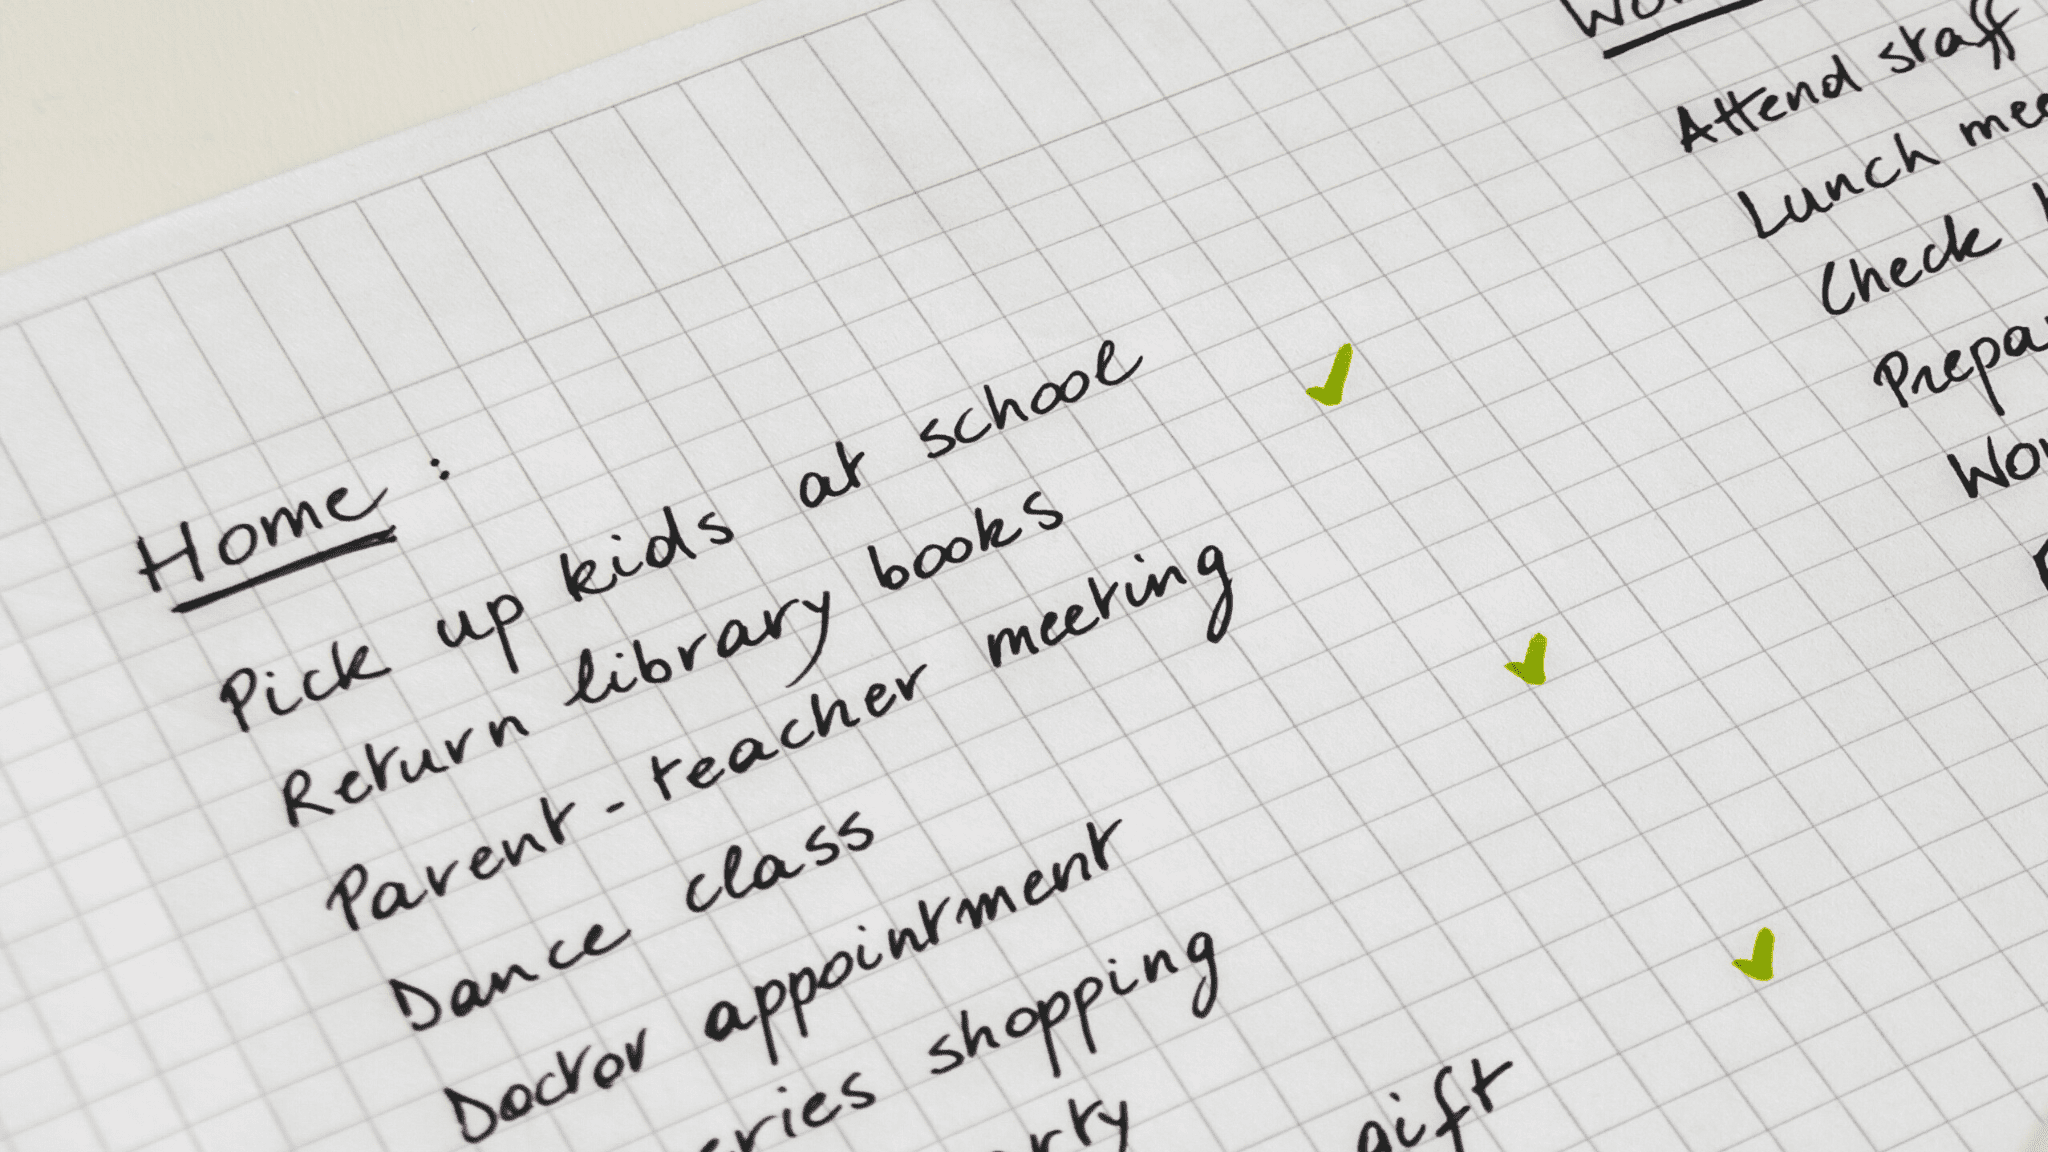 Home :
Pick up kids at school
Return library books
Parent - teacher meeting
Dance class
Doctor appointment
shopping
gift
Attend staff
Lunch
Check